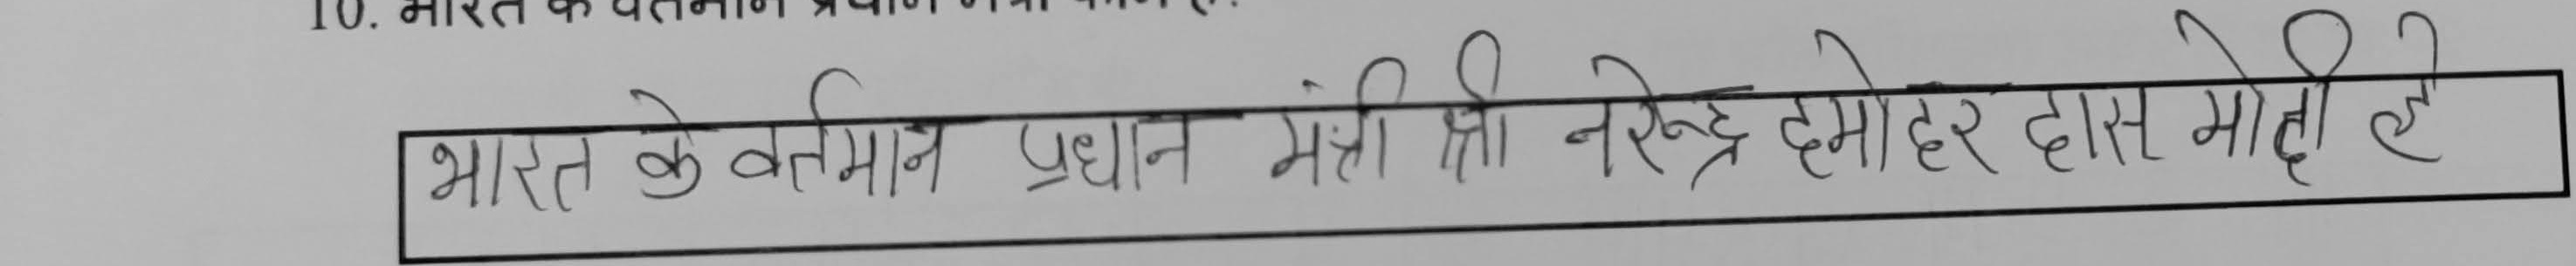 10. भारत के वर्तमान प्रधान मंत्री कौन है?
भारत के वर्तमान प्रधान मंत्री श्री नरेन्द्र दमोदर दास मोदी है